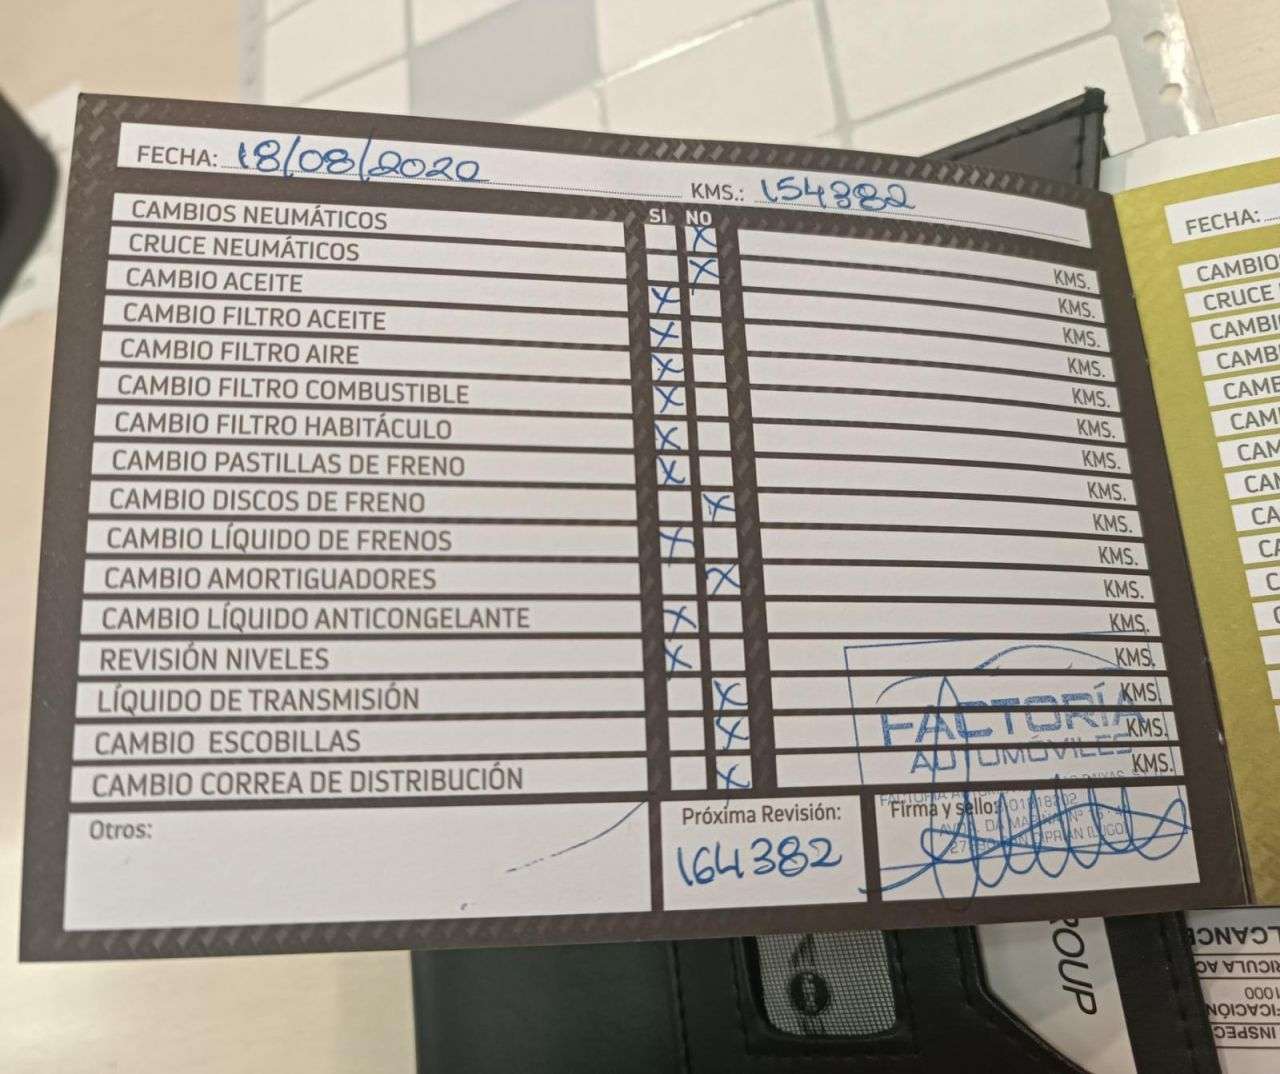 FECHA: 18/08/2020 KMS.: 154382
SI NO
CAMBIOS NEUMÁTICOS X KMS.
CRUCE NEUMÁTICOS X KMS.
CAMBIO ACEITE X KMS.
CAMBIO FILTRO ACEITE X KMS.
CAMBIO FILTRO AIRE X KMS.
CAMBIO FILTRO COMBUSTIBLE X KMS.
CAMBIO FILTRO HABITÁCULO X KMS.
CAMBIO PASTILLAS DE FRENO X KMS.
CAMBIO DISCOS DE FRENO X KMS.
CAMBIO LÍQUIDO DE FRENOS X KMS.
CAMBIO AMORTIGUADORES X KMS.
CAMBIO LÍQUIDO ANTICONGELANTE X KMS.
REVISIÓN NIVELES X KMS.
LÍQUIDO DE TRANSMISIÓN X KMS.
CAMBIO ESCOBILLAS X KMS.
CAMBIO CORREA DE DISTRIBUCIÓN X KMS.
FACTORÍA
AUTOMÓVILES
Otros:
Próxima Revisión:
164382
Firma y sello:
FECHA:
CAMBIO
CRUCE
ROUP